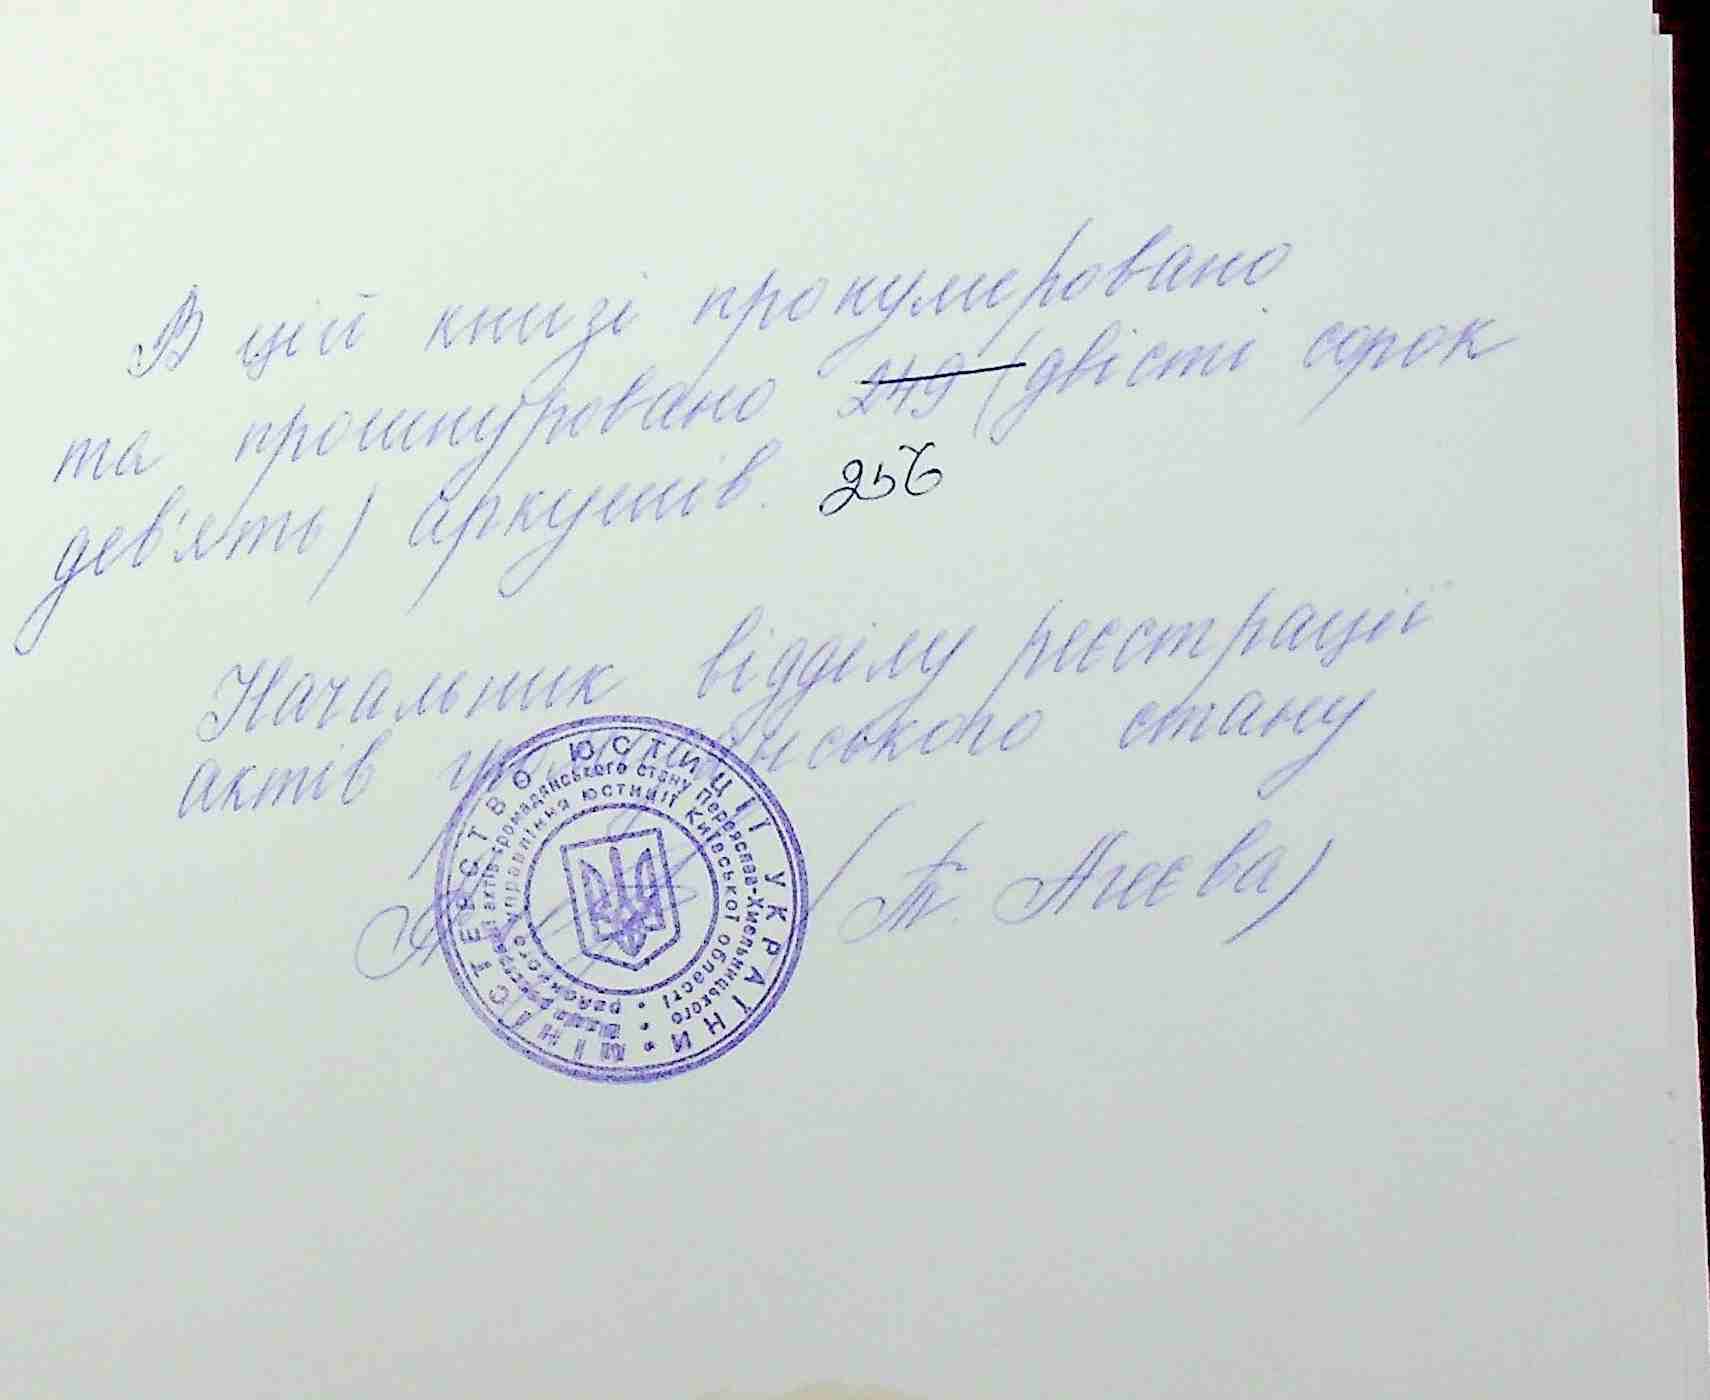 В цій книзі пронумеровано
та прошнуровано 249 (двісті сорок
дев'ять) аркушів. 256
Начальник відділу реєстрації
актів громадянського стану
(Т. Агеєва)
МІНІСТЕРСТВО ЮСТИЦІЇ УКРАЇНИ
Відділ реєстрації актів громадянського стану Переяслав-Хмельницького
районного управління юстиції Київської області